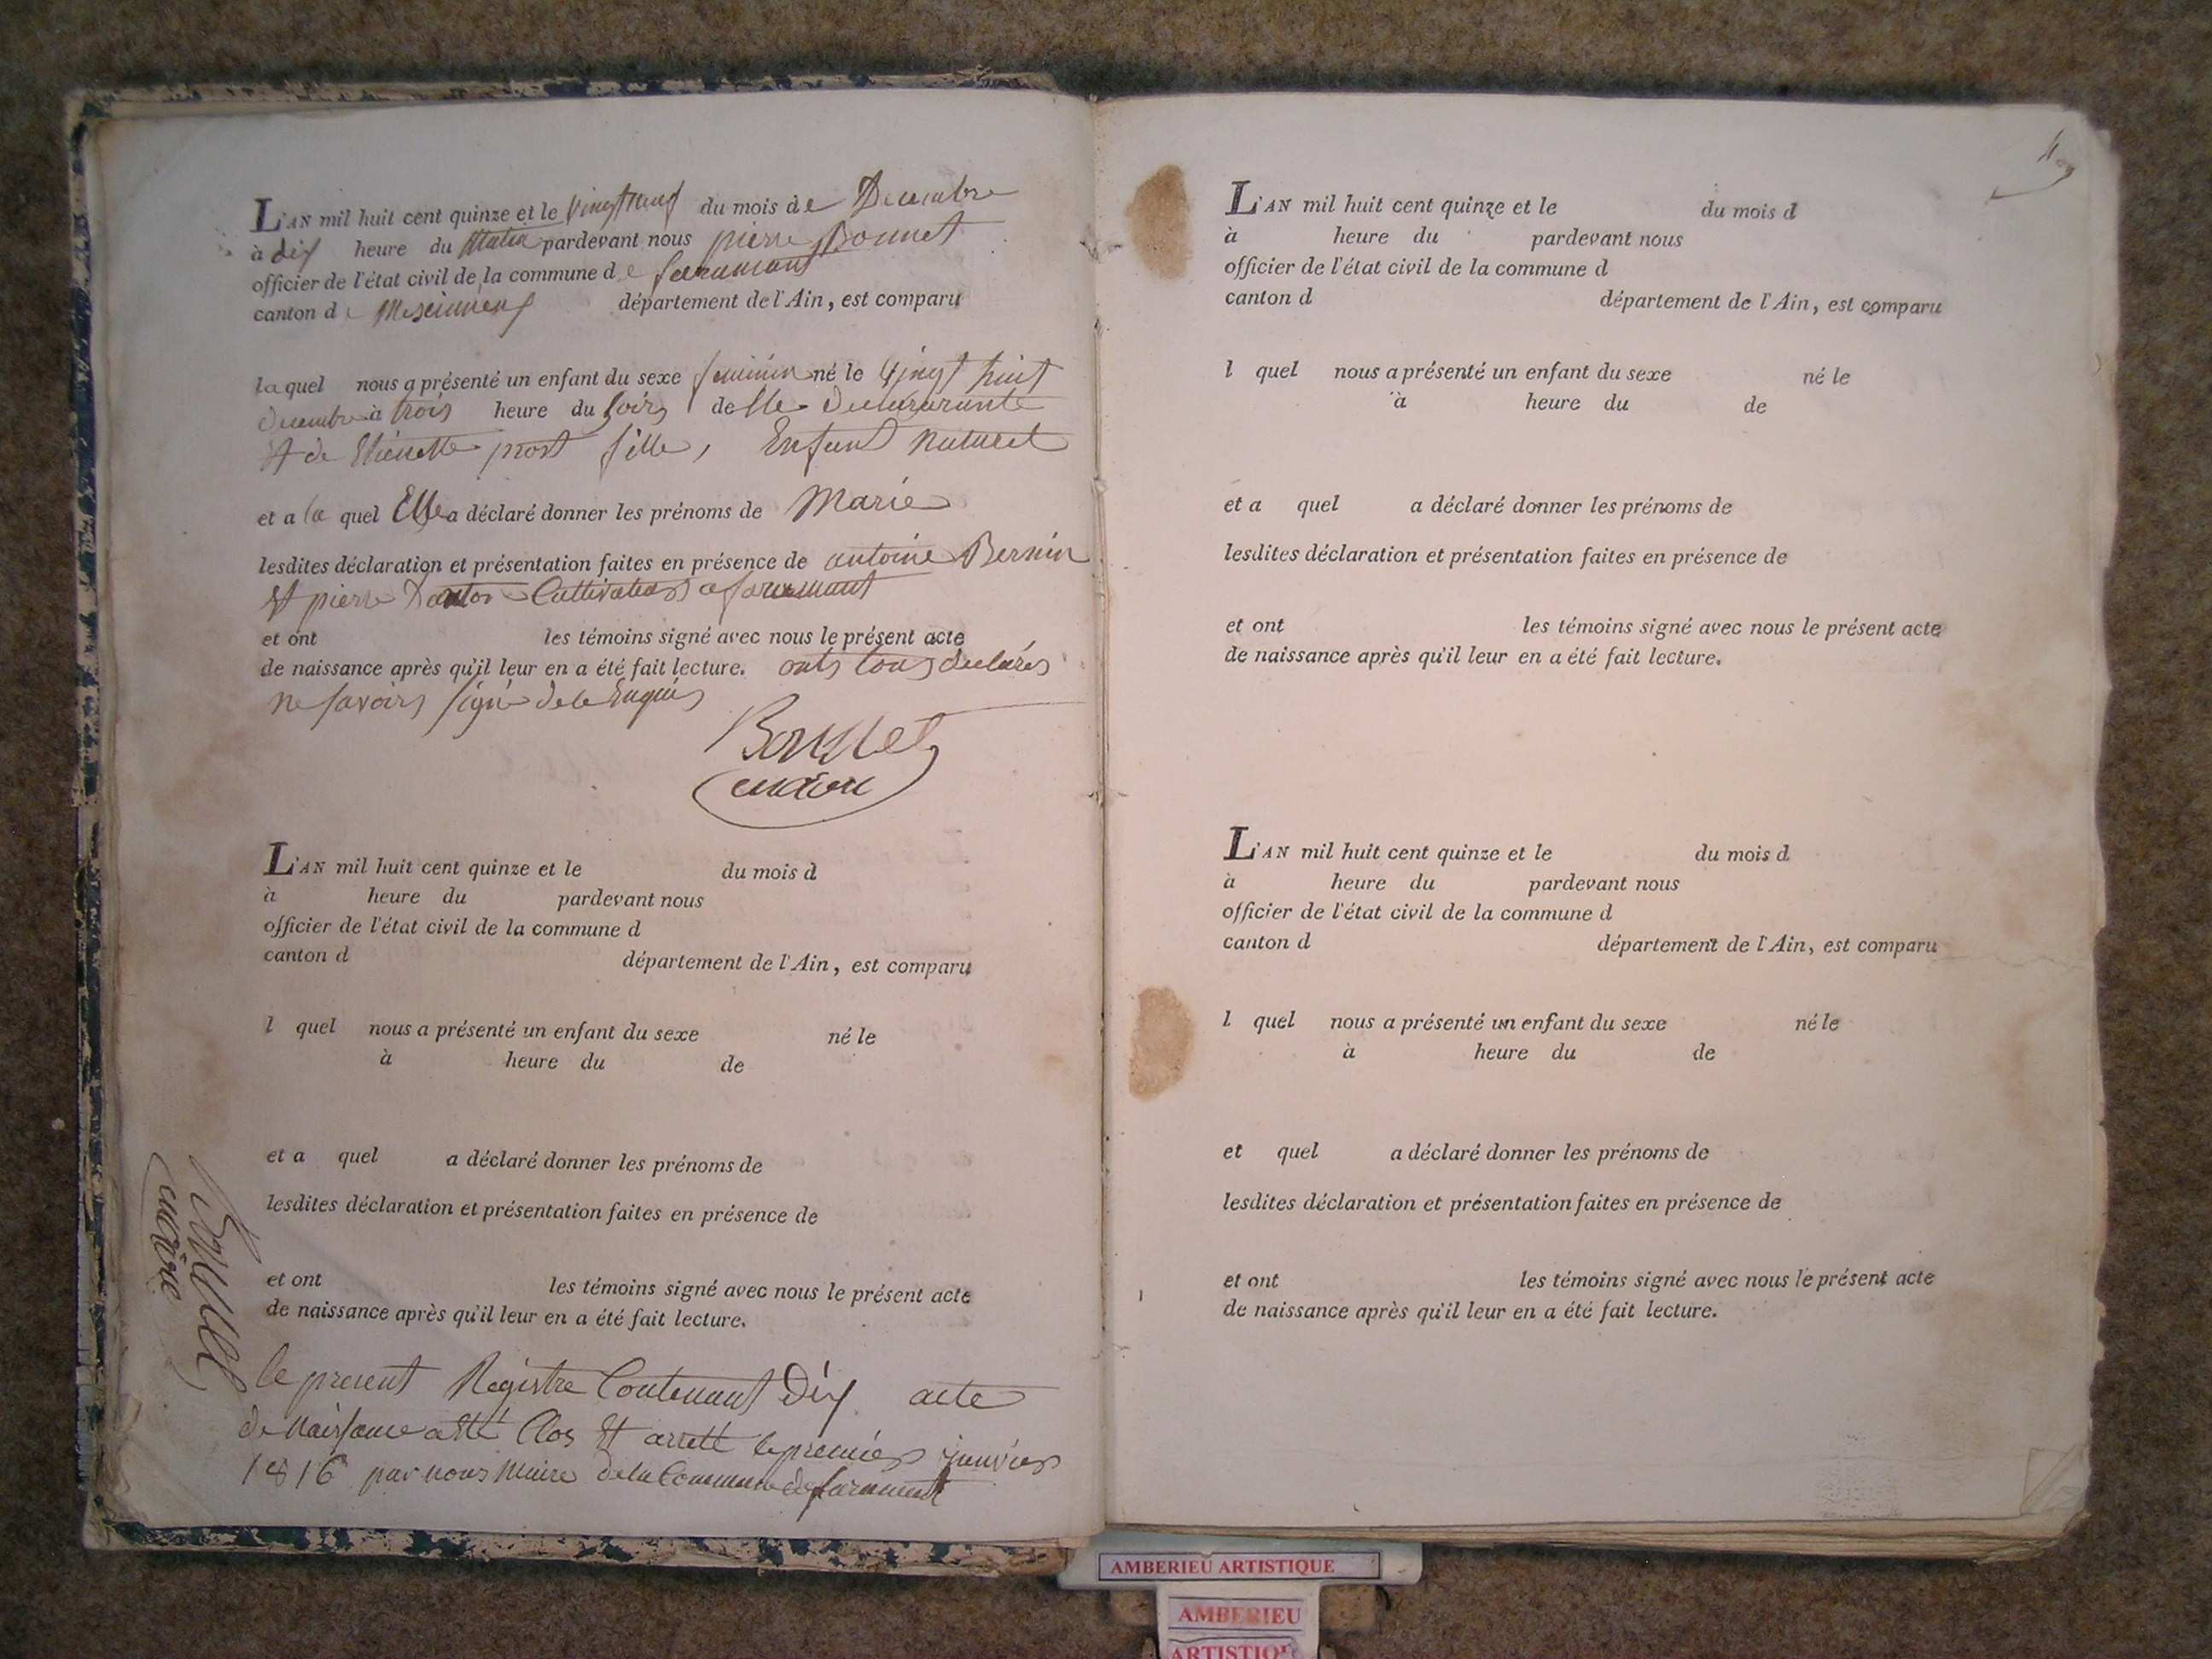 L'AN mil huit cent quinze et le vingt neuf du mois de Decembre
à dix heure du Matin pardevant nous pierre Bonnet
officier de l'état civil de la commune de faramant
canton de Meximieux département de l'Ain, est comparu
laquel nous a présenté un enfant du sexe feminin né le Vingt huit
decembre à trois heure du soirs de lle declararante
Et de Etienette prost fille, Enfant naturel
et a la quel Elle a déclaré donner les prénoms de Marie
lesdites déclaration et présentation faites en présence de antoine Bernin
Et pierre Cultivateurs a faramant
et ont les témoins signé avec nous le présent acte
de naissance après qu'il leur en a été fait lecture. onts tous declarés
ne savoirs signé de le Enquis
Bonnet
L'AN mil huit cent quinze et le du mois d
à heure du pardevant nous
officier de l'état civil de la commune d
canton d département de l'Ain, est comparu
l quel nous a présenté un enfant du sexe né le
à heure du de
et a quel a déclaré donner les prénoms de
lesdites déclaration et présentation faites en présence de
et ont les témoins signé avec nous le présent acte
de naissance après qu'il leur en a été fait lecture.
le present Registre Contenant Dix acte
de Naissance a Eté Clos Et arretté le premiers janviers
1816 par nous Maire de la Commune de faramant
Bonnet
L'AN mil huit cent quinze et le du mois d
à heure du pardevant nous
officier de l'état civil de la commune d
canton d département de l'Ain, est comparu
l quel nous a présenté un enfant du sexe né le
à heure du de
et a quel a déclaré donner les prénoms de
lesdites déclaration et présentation faites en présence de
et ont les témoins signé avec nous le présent acte
de naissance après qu'il leur en a été fait lecture.
L'AN mil huit cent quinze et le du mois d
à heure du pardevant nous
officier de l'état civil de la commune d
canton d département de l'Ain, est comparu
l quel nous a présenté un enfant du sexe né le
à heure du de
et quel a déclaré donner les prénoms de
lesdites déclaration et présentation faites en présence de
et ont les témoins signé avec nous le présent acte
de naissance après qu'il leur en a été fait lecture.
AMBERIEU ARTISTIQUE
AMBERIEU
ARTISTIQUE